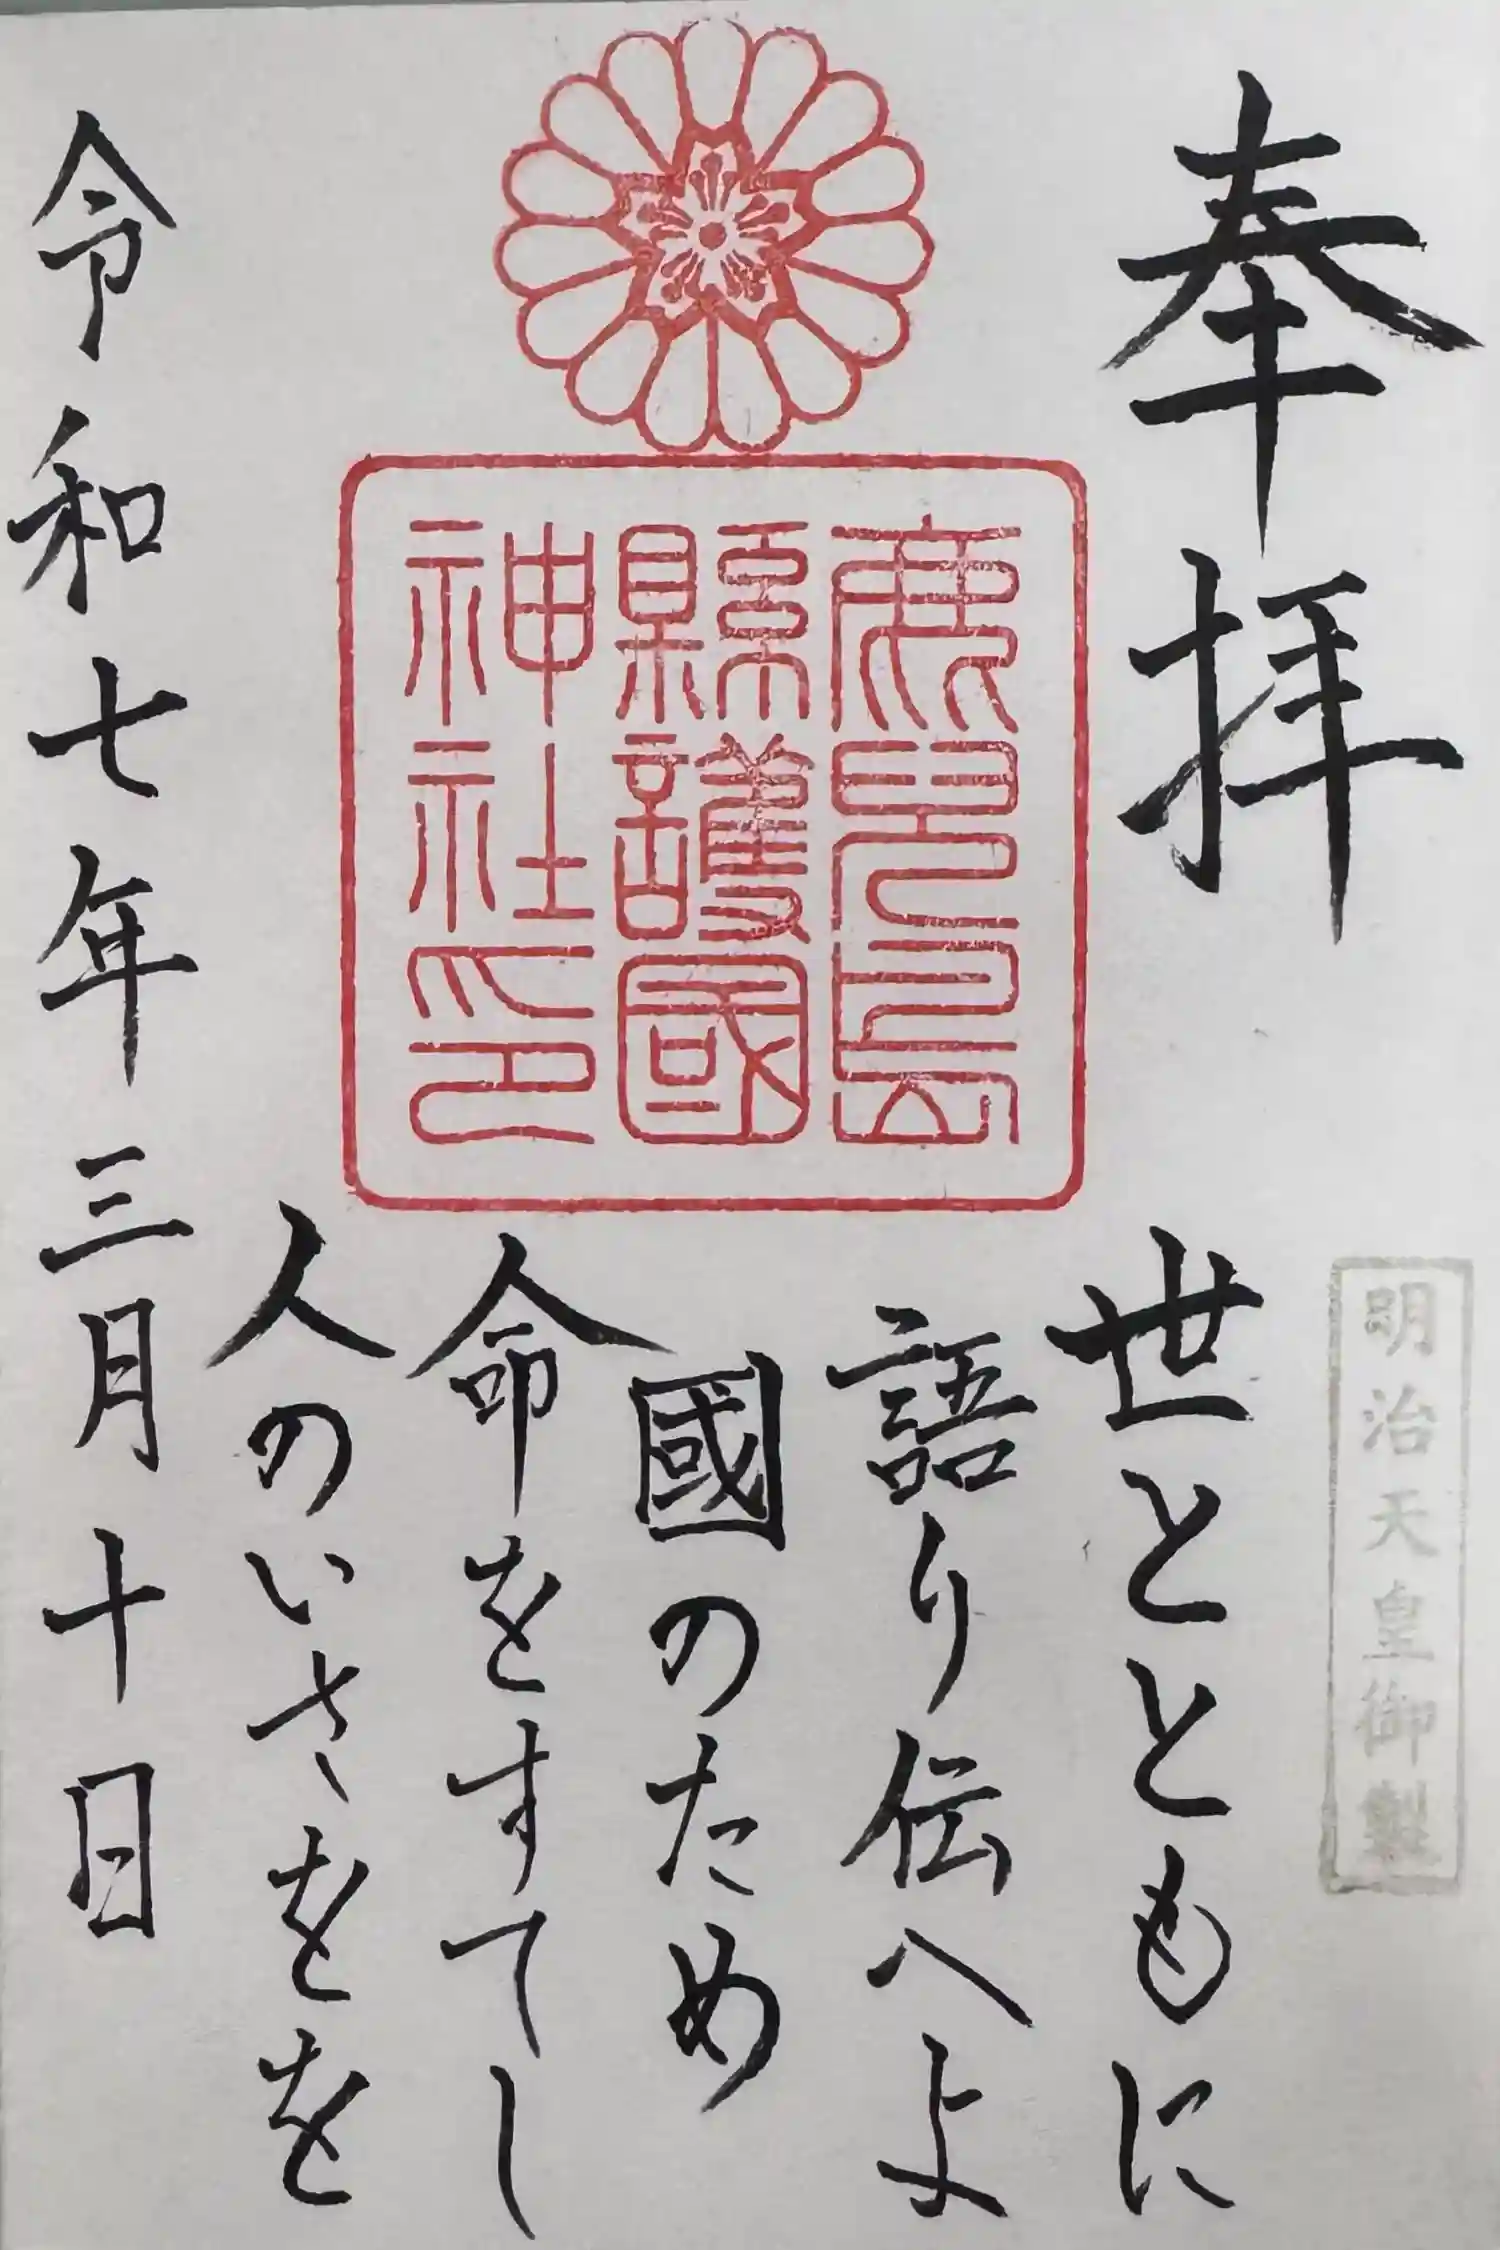 奉拝
明治天皇御製
鹿兒島
縣護國
神社印
世とともに
語り伝へよ
國のため
命をすてし
人のいさをを
令和七年三月十日